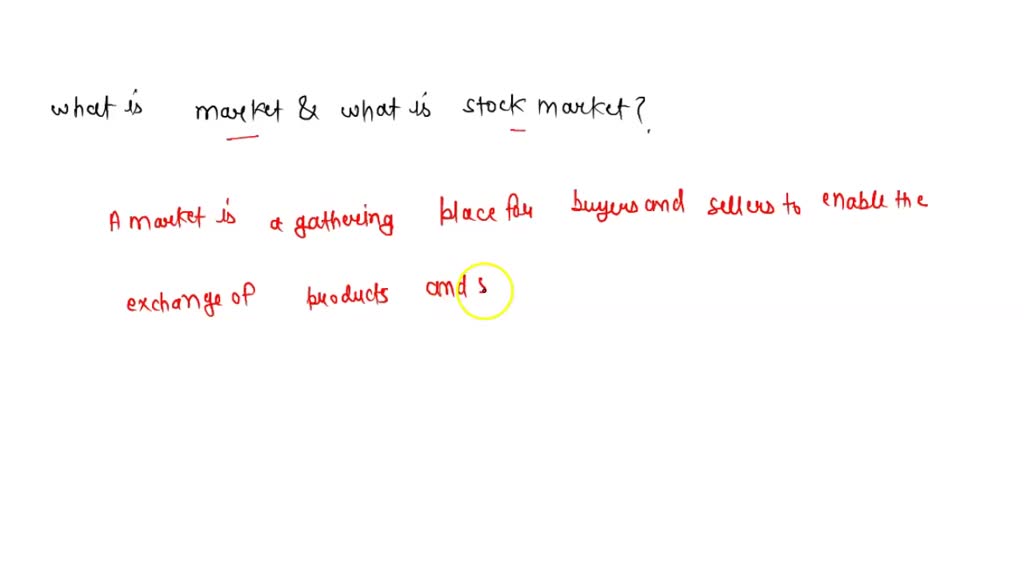 what is market & what is stock market?
A market is a gathering place for buyers and sellers to enable the
exchange of products and s